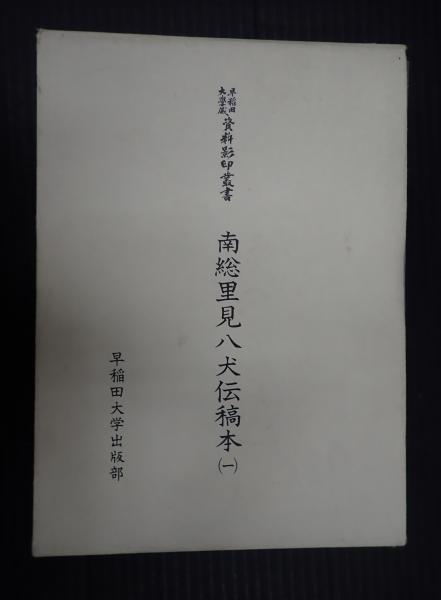 早稲田大學蔵資料影印叢書
南総里見八犬伝稿本(一)
早稲田大学出版部